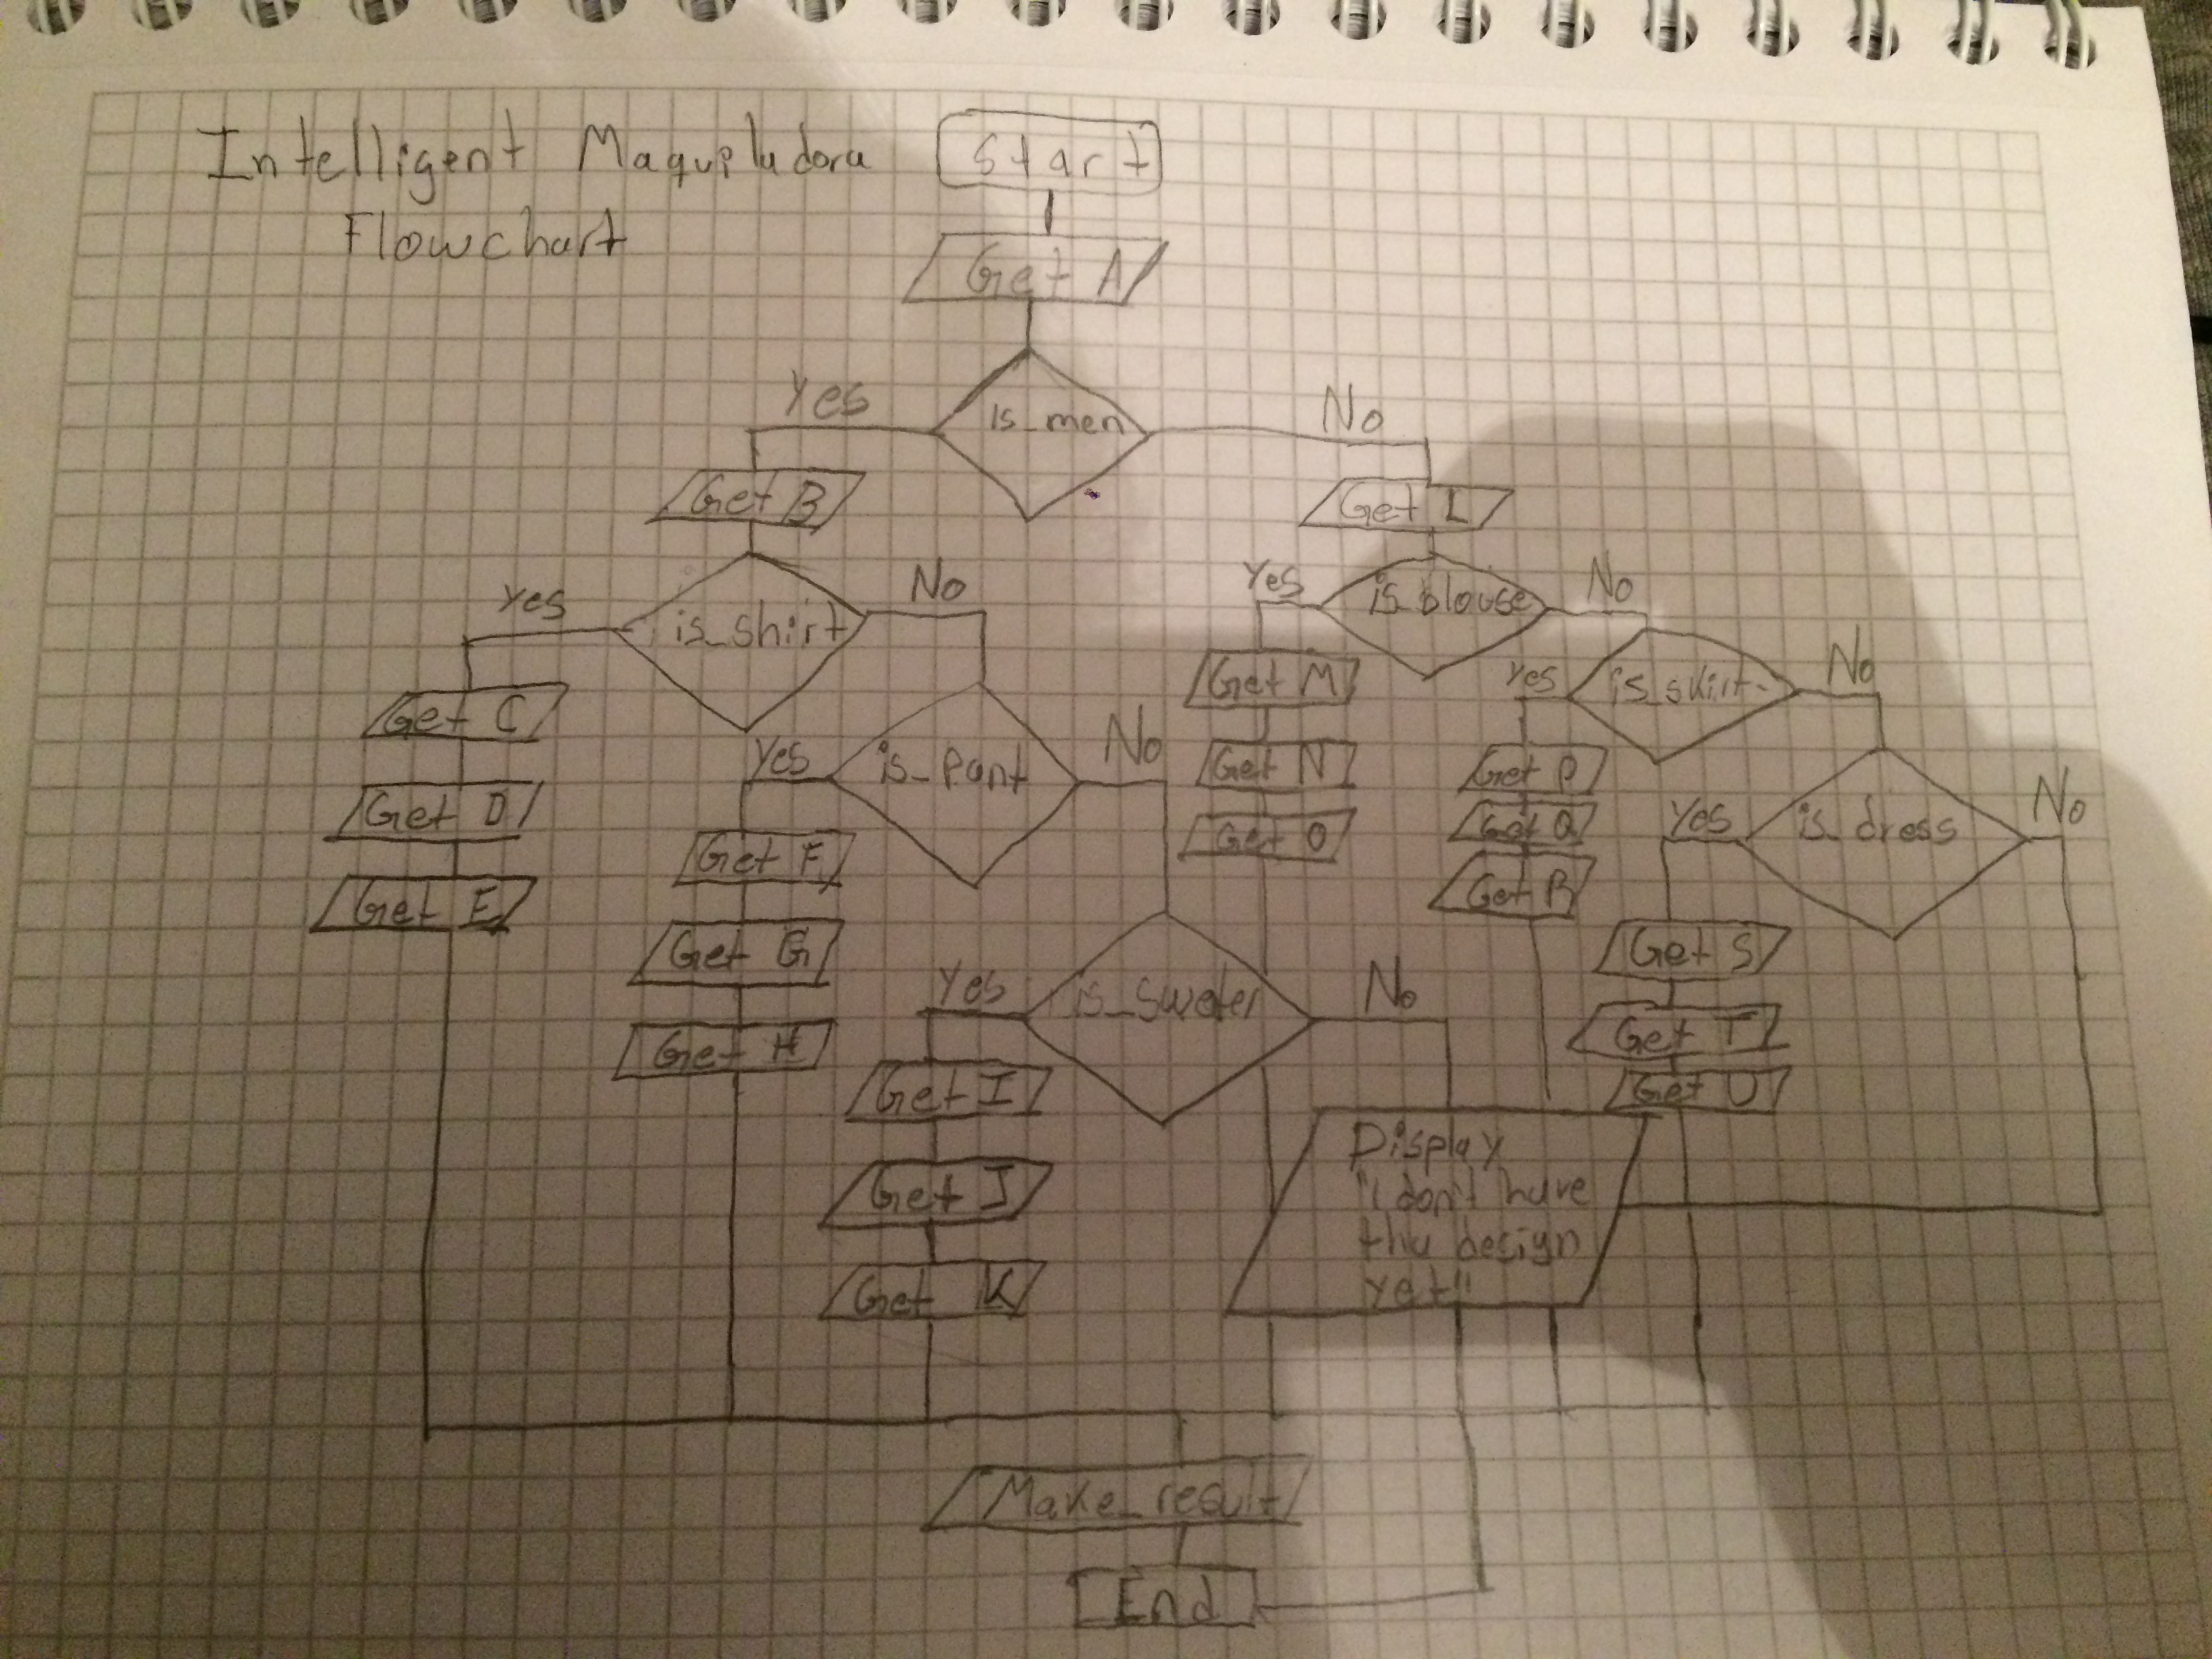 Intelligent Maquiladora
Flowchart
Start
Get A
is_men
Yes
No
Get B
is_Shirt
Yes
No
Get C
Get D
Get E
is_Pant
Yes
No
Get F
Get G
Get H
is_Sweter
Yes
No
Get I
Get J
Get K
Get L
is_blouse
Yes
No
Get M
Get N
Get O
is_skirt
Yes
No
Get P
Get Q
Get R
is_dress
Yes
No
Get S
Get T
Get U
Display
"i don't have
this design
yet"
Make_result
End